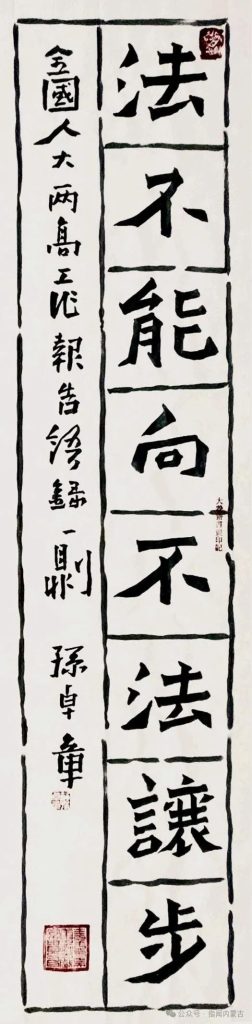 法不能向不法讓步
全國人大两高工作報告語錄一則 孫卓章
公众号·指闻内蒙古